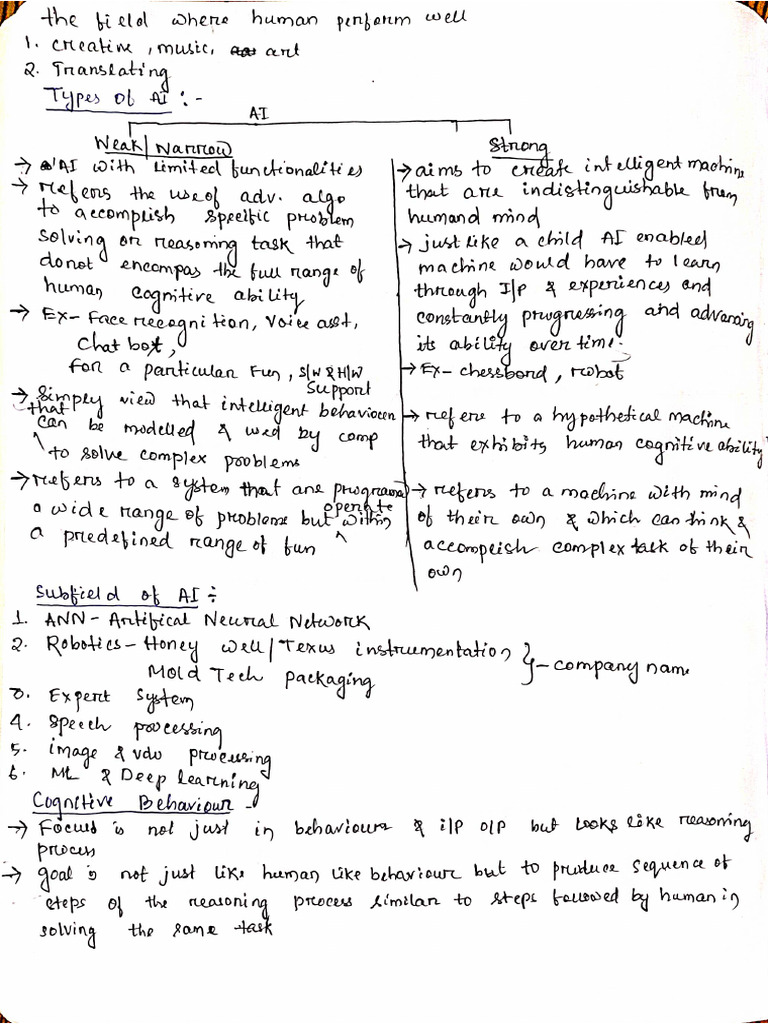 the field where human perform well
1. Creative, music, art
2. Translating
Types of AI :-
AI
Weak/Narrow
→ AI with limited functionalities
→ refers the use of adv. algo
to accomplish specific problem
solving or reasoning task that
donot encompas the full range of
human cognitive ability
→ Ex- Face recognition, Voice asst,
Chat bot,
for a particular Fun, S/W & H/W
Support
→ simply view that intelligent behaviour
that can be modelled & used by comp
to solve complex problems
→ refers to a system that are programed
a wide range of problems but operate within
a predefined range of fun
Strong
→ aims to create intelligent machine
that are indistinguishable from
humand mind
→ just like a child AI enabled
machine would have to learn
through I/P & experiences and
constantly progressing and advancing
its ability over time.
→ Ex- chessbord, robot
→ refere to a hypothetical machine
that exhibits human cognitive ability
→ refers to a machine with mind
of their own & which can think &
accomplish complex task of their
own
Subfield of AI :-
1. ANN - Artifical Neural Network
2. Robotics - Honey well/Texus instrumentation
Mold Tech packaging
} - company name
3. Expert System
4. Speech processing
5. image & vdo processing
6. ML & Deep learning
Cognitive Behaviour -
→ Focus is not just in behaviour & i/p o/p but looks like reasoning
process
→ goal is not just like human like behaviour but to produce sequence of
steps of the reasoning process similar to steps followed by human in
solving the same task